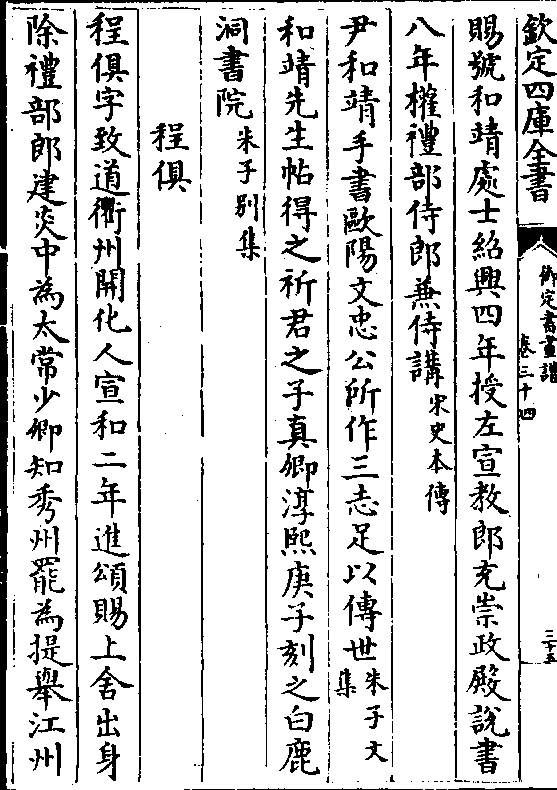 欽定四庫全書
御定書畫譜
卷三十四
三十五
賜號和靖處士紹興四年授左宣教郎充崇政殿說書
八年權禮部侍郎兼侍講宋史本傳
尹和靖手書歐陽文忠公所作三志足以傳世朱子文集
和靖先生帖得之祈君之子真卿淳熙庚子刻之白鹿
洞書院朱子别集
程俱
程俱字致道衢州開化人宣和二年進頌賜上舍出身
除禮部郎建炎中為太常少卿知秀州罷為提舉江州